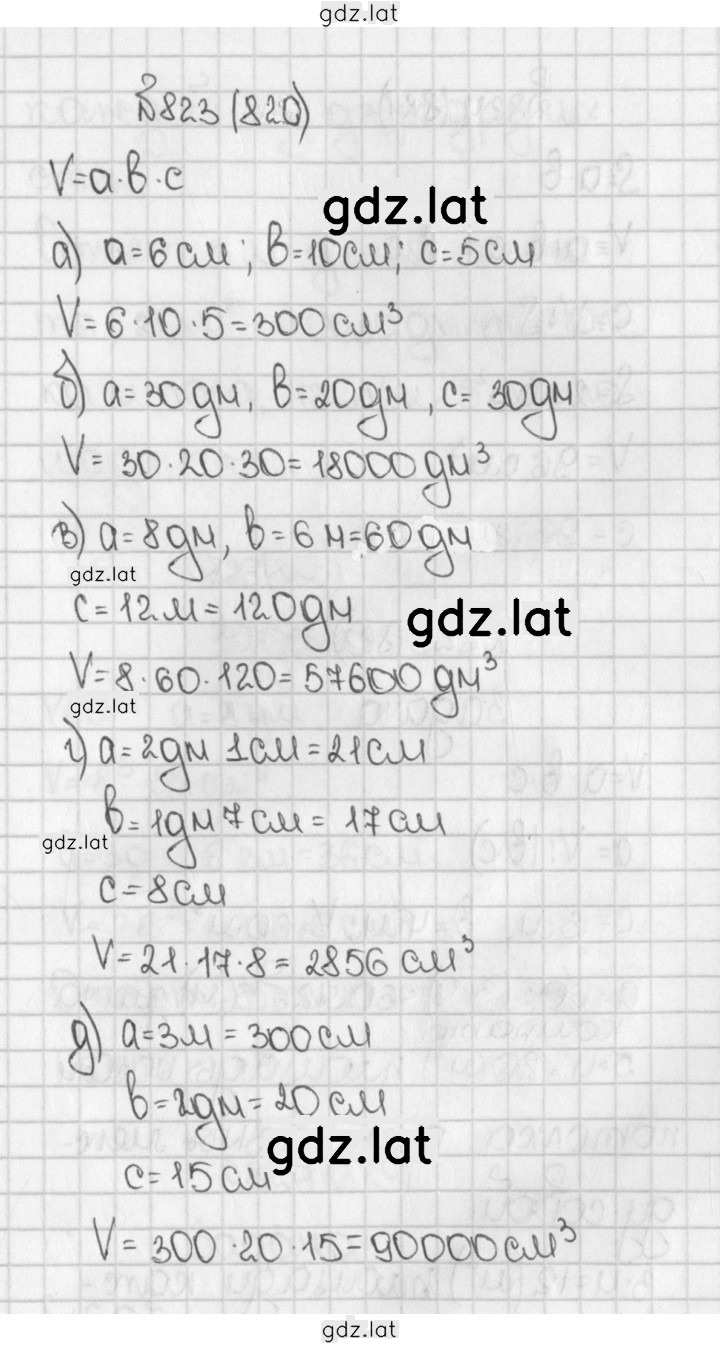 gdz.lat
№823 (820)
V=a·b·c
gdz.lat
а) a=6см; b=10см; c=5см
V=6·10·5=300см³
б) a=30дм, b=20дм, c=30дм
V=30·20·30=18000дм³
в) a=8дм, b=6м=60дм
gdz.lat
c=12м=120дм
gdz.lat
V=8·60·120=57600дм³
gdz.lat
г) a=2дм 1см=21см
b=1дм7см=17см
gdz.lat
c=8см
V=21·17·8=2856см³
д) a=3м=300см
b=2дм=20см
gdz.lat
c=15см
V=300·20·15=90000см³
gdz.lat